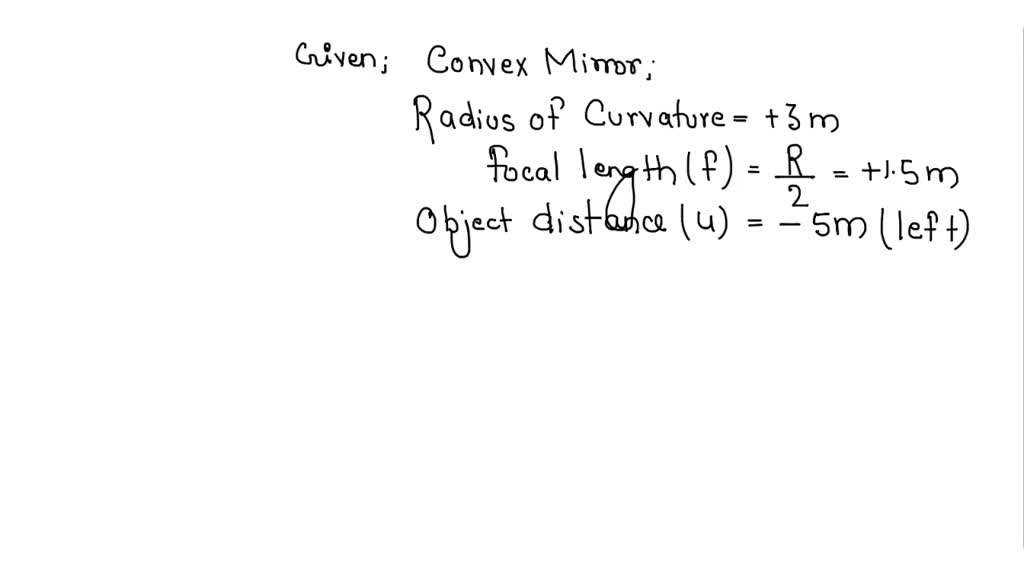 Given; Convex Mirror;
Radius of Curvature = +3m
focal length (f) = R/2 = +1.5m
Object distance (u) = - 5m (left)